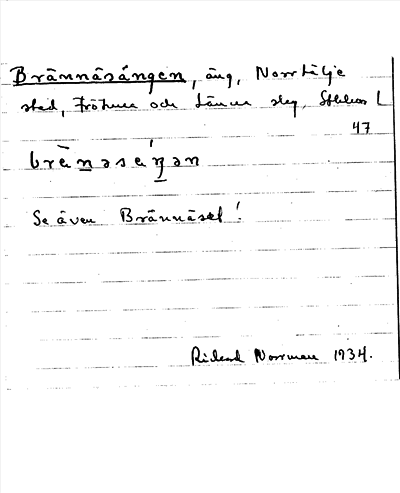 Brännäsängen, äng, Norrtälje
stad, Frötuna och Länna skg, Sthlms L
47
brènaseŋən
Se även Brännäset!
Rickard Norrman 1934.